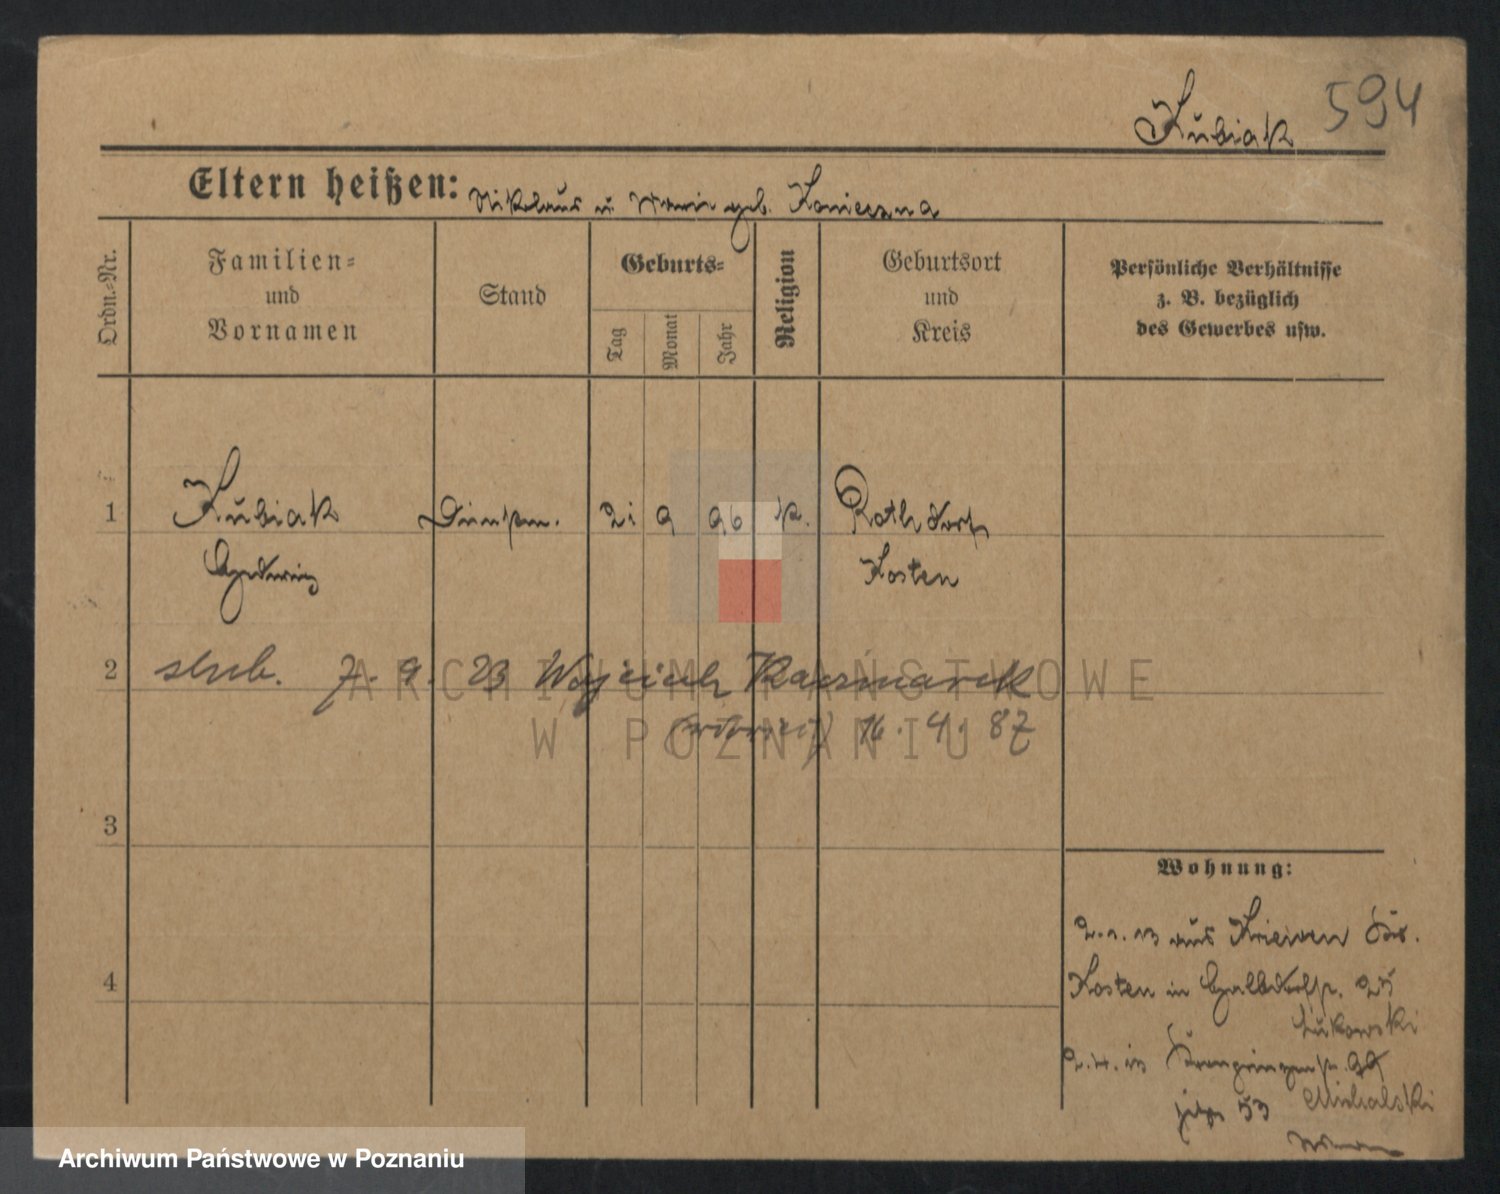 Kubiak 594
Eltern heißen: Nikolaus u. Maria geb. Konieczna
Ordn.-Nr.
Familien-
und
Vornamen
Stand
Geburts-
Tag
Monat
Jahr
Religion
Geburtsort
und
Kreis
Persönliche Verhältnisse
z. B. bezüglich
des Gewerbes usw.
1 Kubiak 21 9 96 k. Rothdorf
Hedwig Kosten
2 slub. 7. 9. 23 Wojciech Kaczmarek
16. 4. 87
3
4
Wohnung:
aus Kriewen
Kosten in 25
Lukowski
Kronprinzenstr.
jetzt 53 Michalski
ARCHIWUM PAŃSTWOWE
W POZNANIU
Archiwum Państwowe w Poznaniu